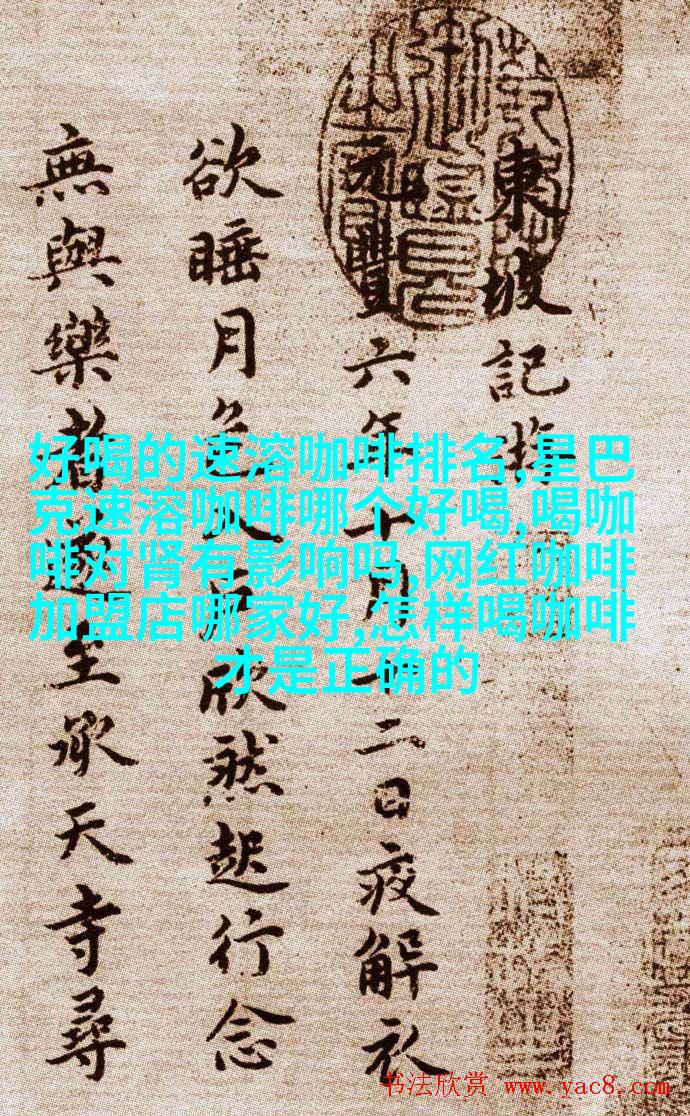 東坡記
元豐六年十月十二日夜解衣
欲睡月色入戶欣然起行念
無與樂者遂至承天寺尋
好喝的速溶咖啡排名,星巴
克速溶咖啡哪个好喝,喝咖
啡对肾有影响吗,网红咖啡
加盟店哪家好,怎样喝咖啡
才是正确的
书法欣赏 www.yac8.com